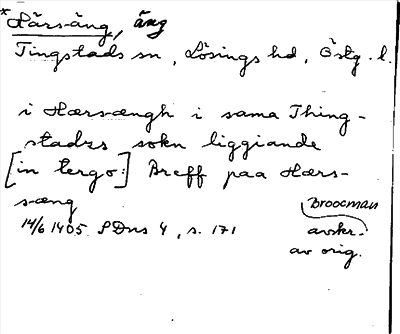 *Härsäng, äng
Tingstads sn, Lösings hd, Östg. l.
i Hærsængh i sama Thing-
stadhs sokn liggiande
[in tergo:] Breff paa Hærs-
sæng
14/6 1405 SDns 4, s. 171
Broocman
avskr.
av orig.